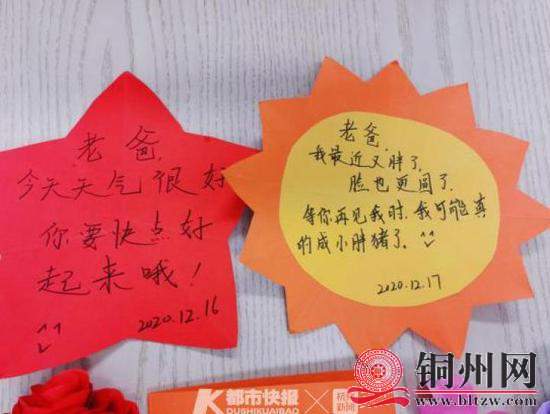 老爸，
今天天气很好
你要快点好
起来哦！
^^
2020.12.16
老爸，
我最近又胖了，
脸也更圆了，
等你再见我时，我可能真
的成小胖猪了。^^
2020.12.17
都市快报
DUSHIKUAIBAO
新闻
铜州网
www.bltzw.com